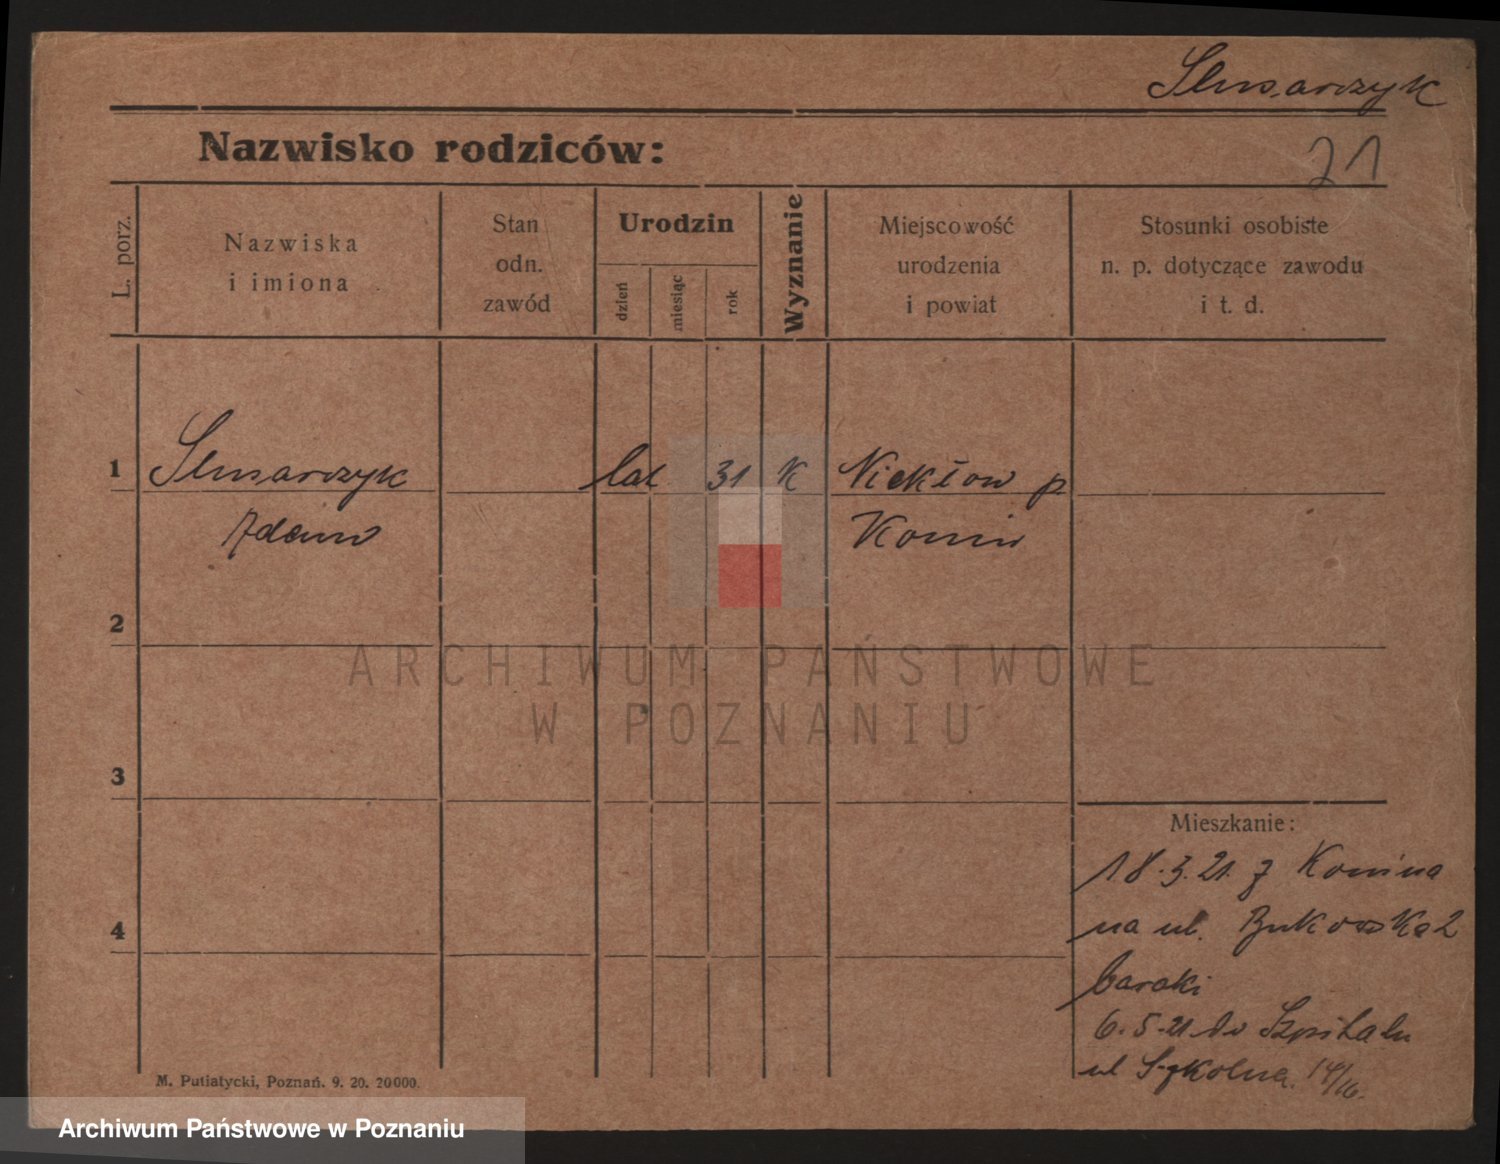 Slusarczyk
Nazwisko rodziców:
21
L. porz.
Nazwiska
i imiona
Stan
odn.
zawód
Urodzin
dzień
miesiąc
rok
Wyznanie
Miejscowość
urodzenia
i powiat
Stosunki osobiste
n. p. dotyczące zawodu
i t. d.
1 Slusarczyk lat 31 K Niekłow p.
Adam Konin
2
ARCHIWUM PAŃSTWOWE
W POZNANIU
3
Mieszkanie:
18.3.21. z Konina
4
na ul. Bukowską 2
baraki
6.5.21. do Szpitalu
ul Szkolna. 14/16.
M. Putiatycki, Poznań. 9. 20. 20000.
Archiwum Państwowe w Poznaniu